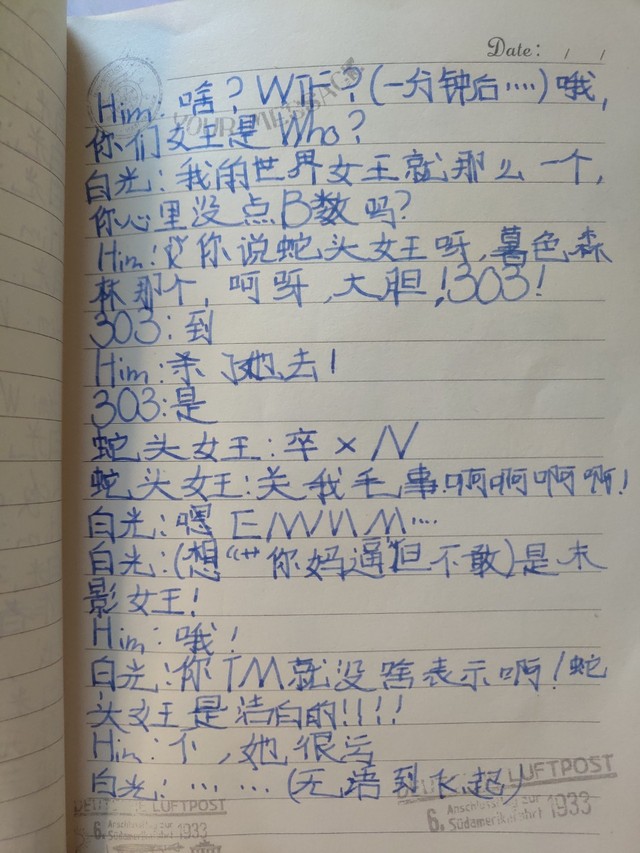 Date: / /
YOUR MESSAGE
Him: 啥? WTF? (一分钟后····) 哦,
你们女王是 Who?
白光: 我的世界女王就那么一个,
你心里没点B数吗?
Him: 你说蛇头女王呀,暮色森
林那个, 呵呀,大胆!303!
303: 到
Him: 杀了她去!
303:是
蛇头女王: 卒 × N
蛇头女王: 关我毛事.啊啊啊啊!
白光: 嗯 EMMM····
白光: (想“艹你妈逼”但不敢)是末
影女王!
Him: 哦!
白光:你TM就没啥表示啊!蛇
头女王是洁白的!!!!
Him: 个, 她很
白光: ··· ··· (无语到飞起)
DEUTSCHE LUFTPOST
LUFTPOST
6. Anschlussflug zur
Südamerikafahrt 1933
6. Anschlussflug zur
Südamerikafahrt 1933